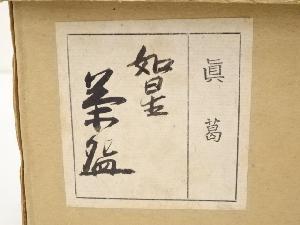 眞葛
如星
茶盌